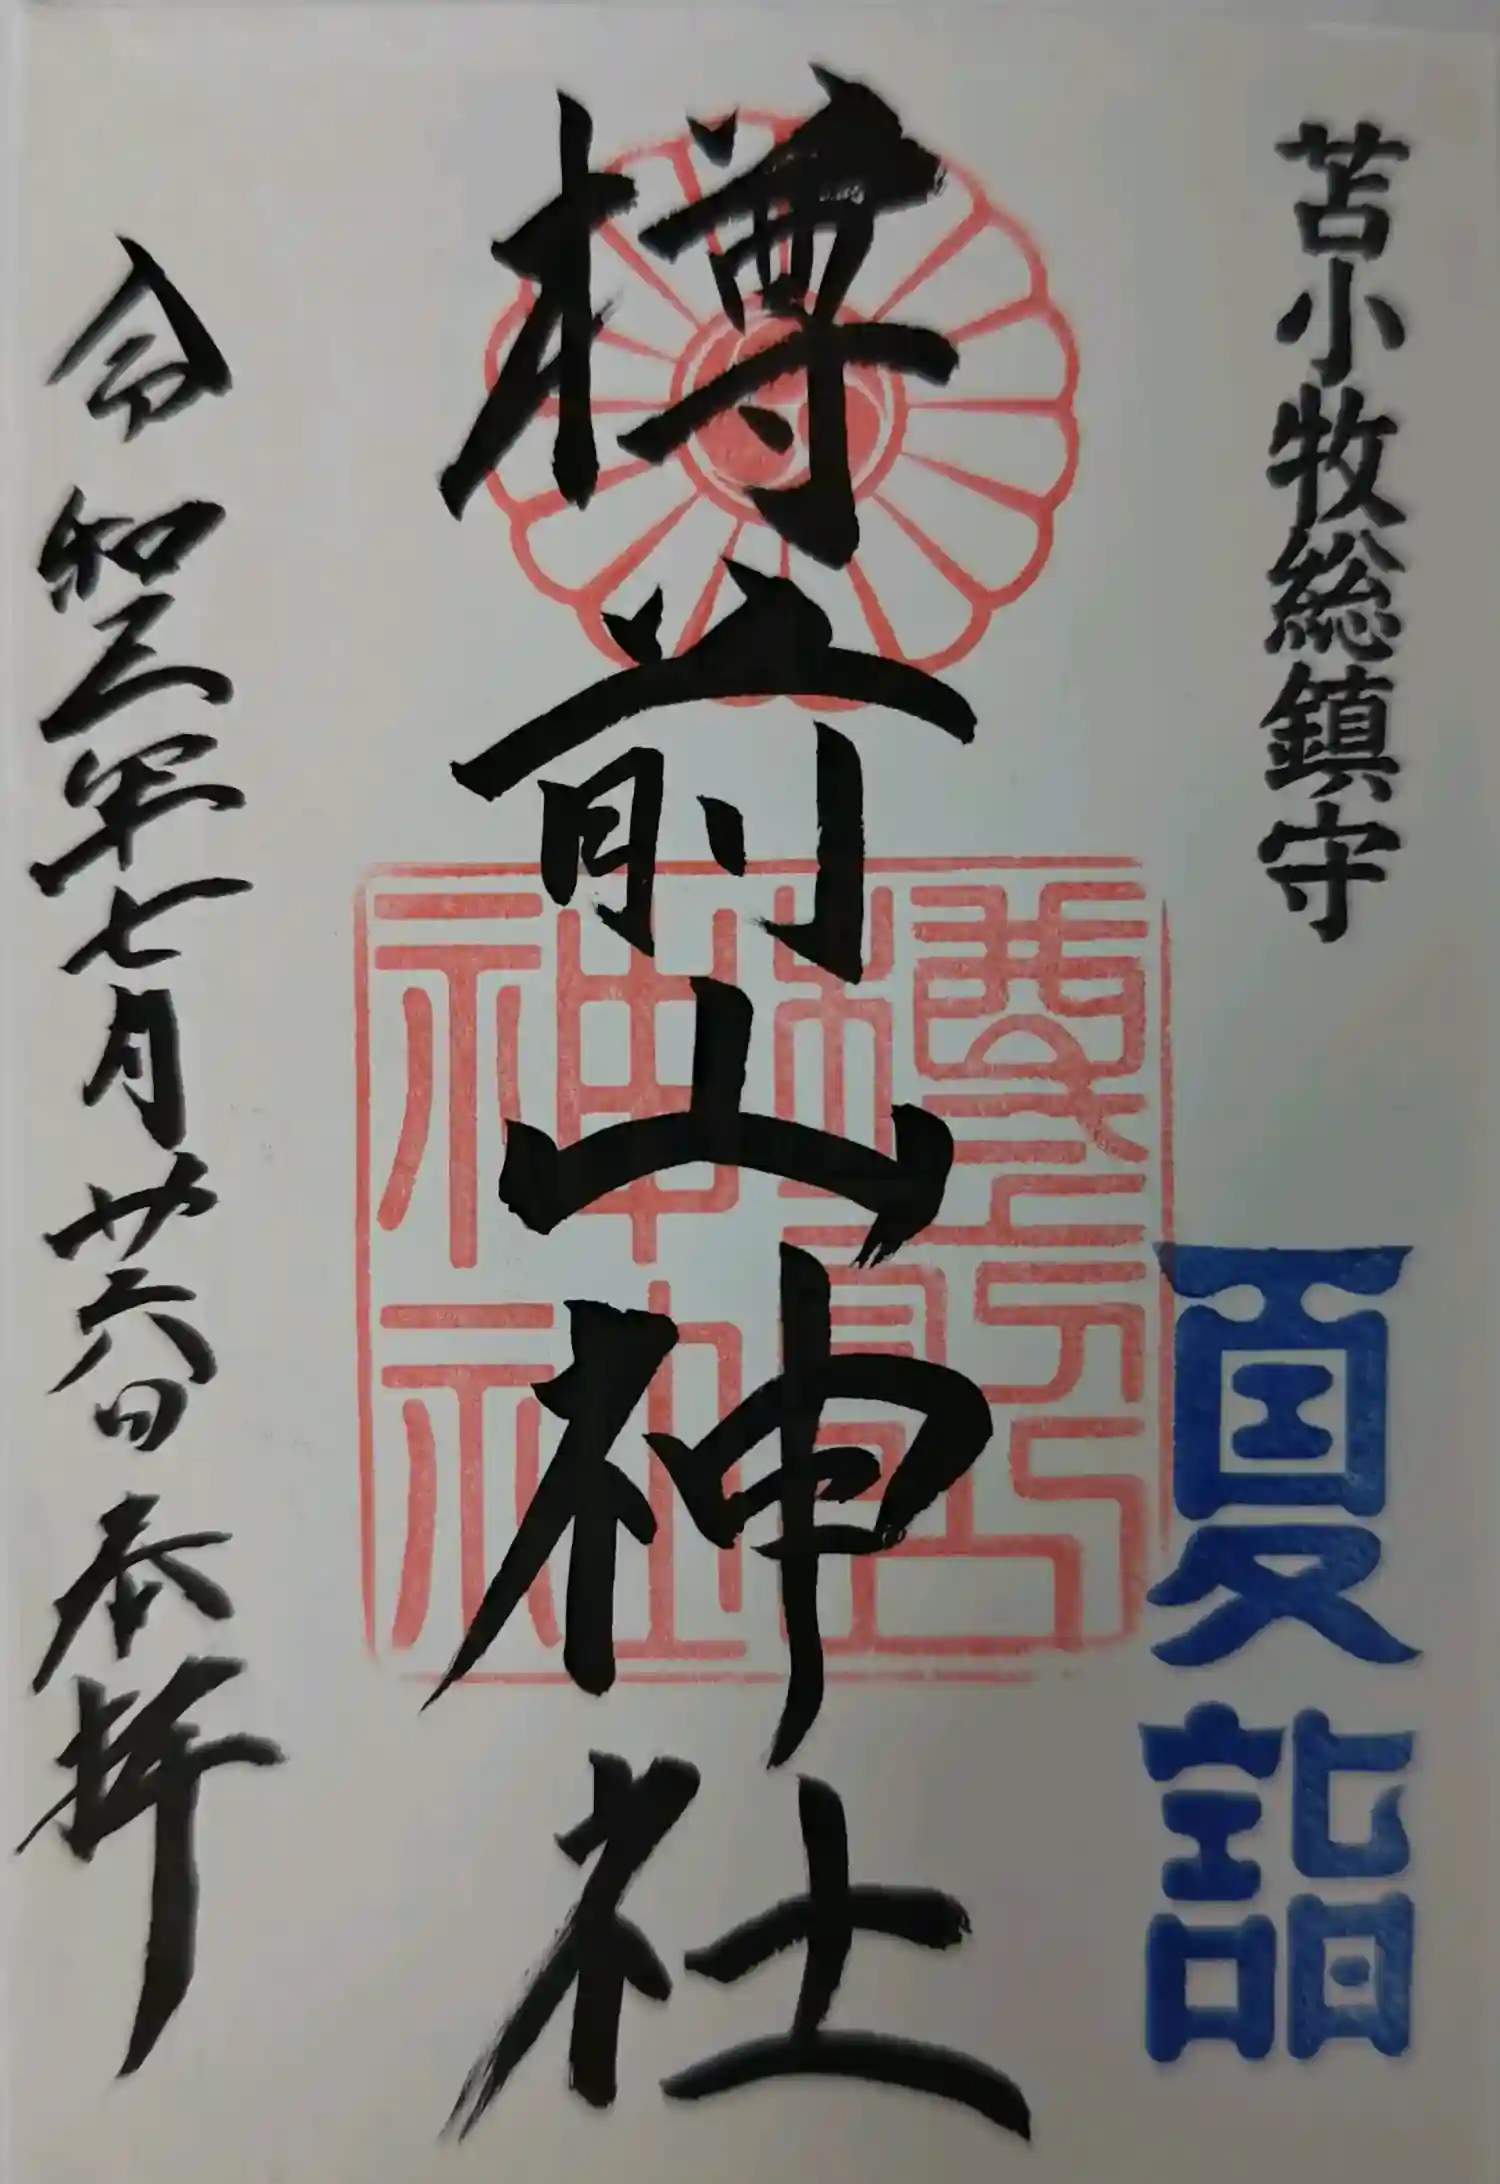 苫小牧総鎮守
夏詣
樽前山神社
樽前山神社
令和三年七月廿六日参拝